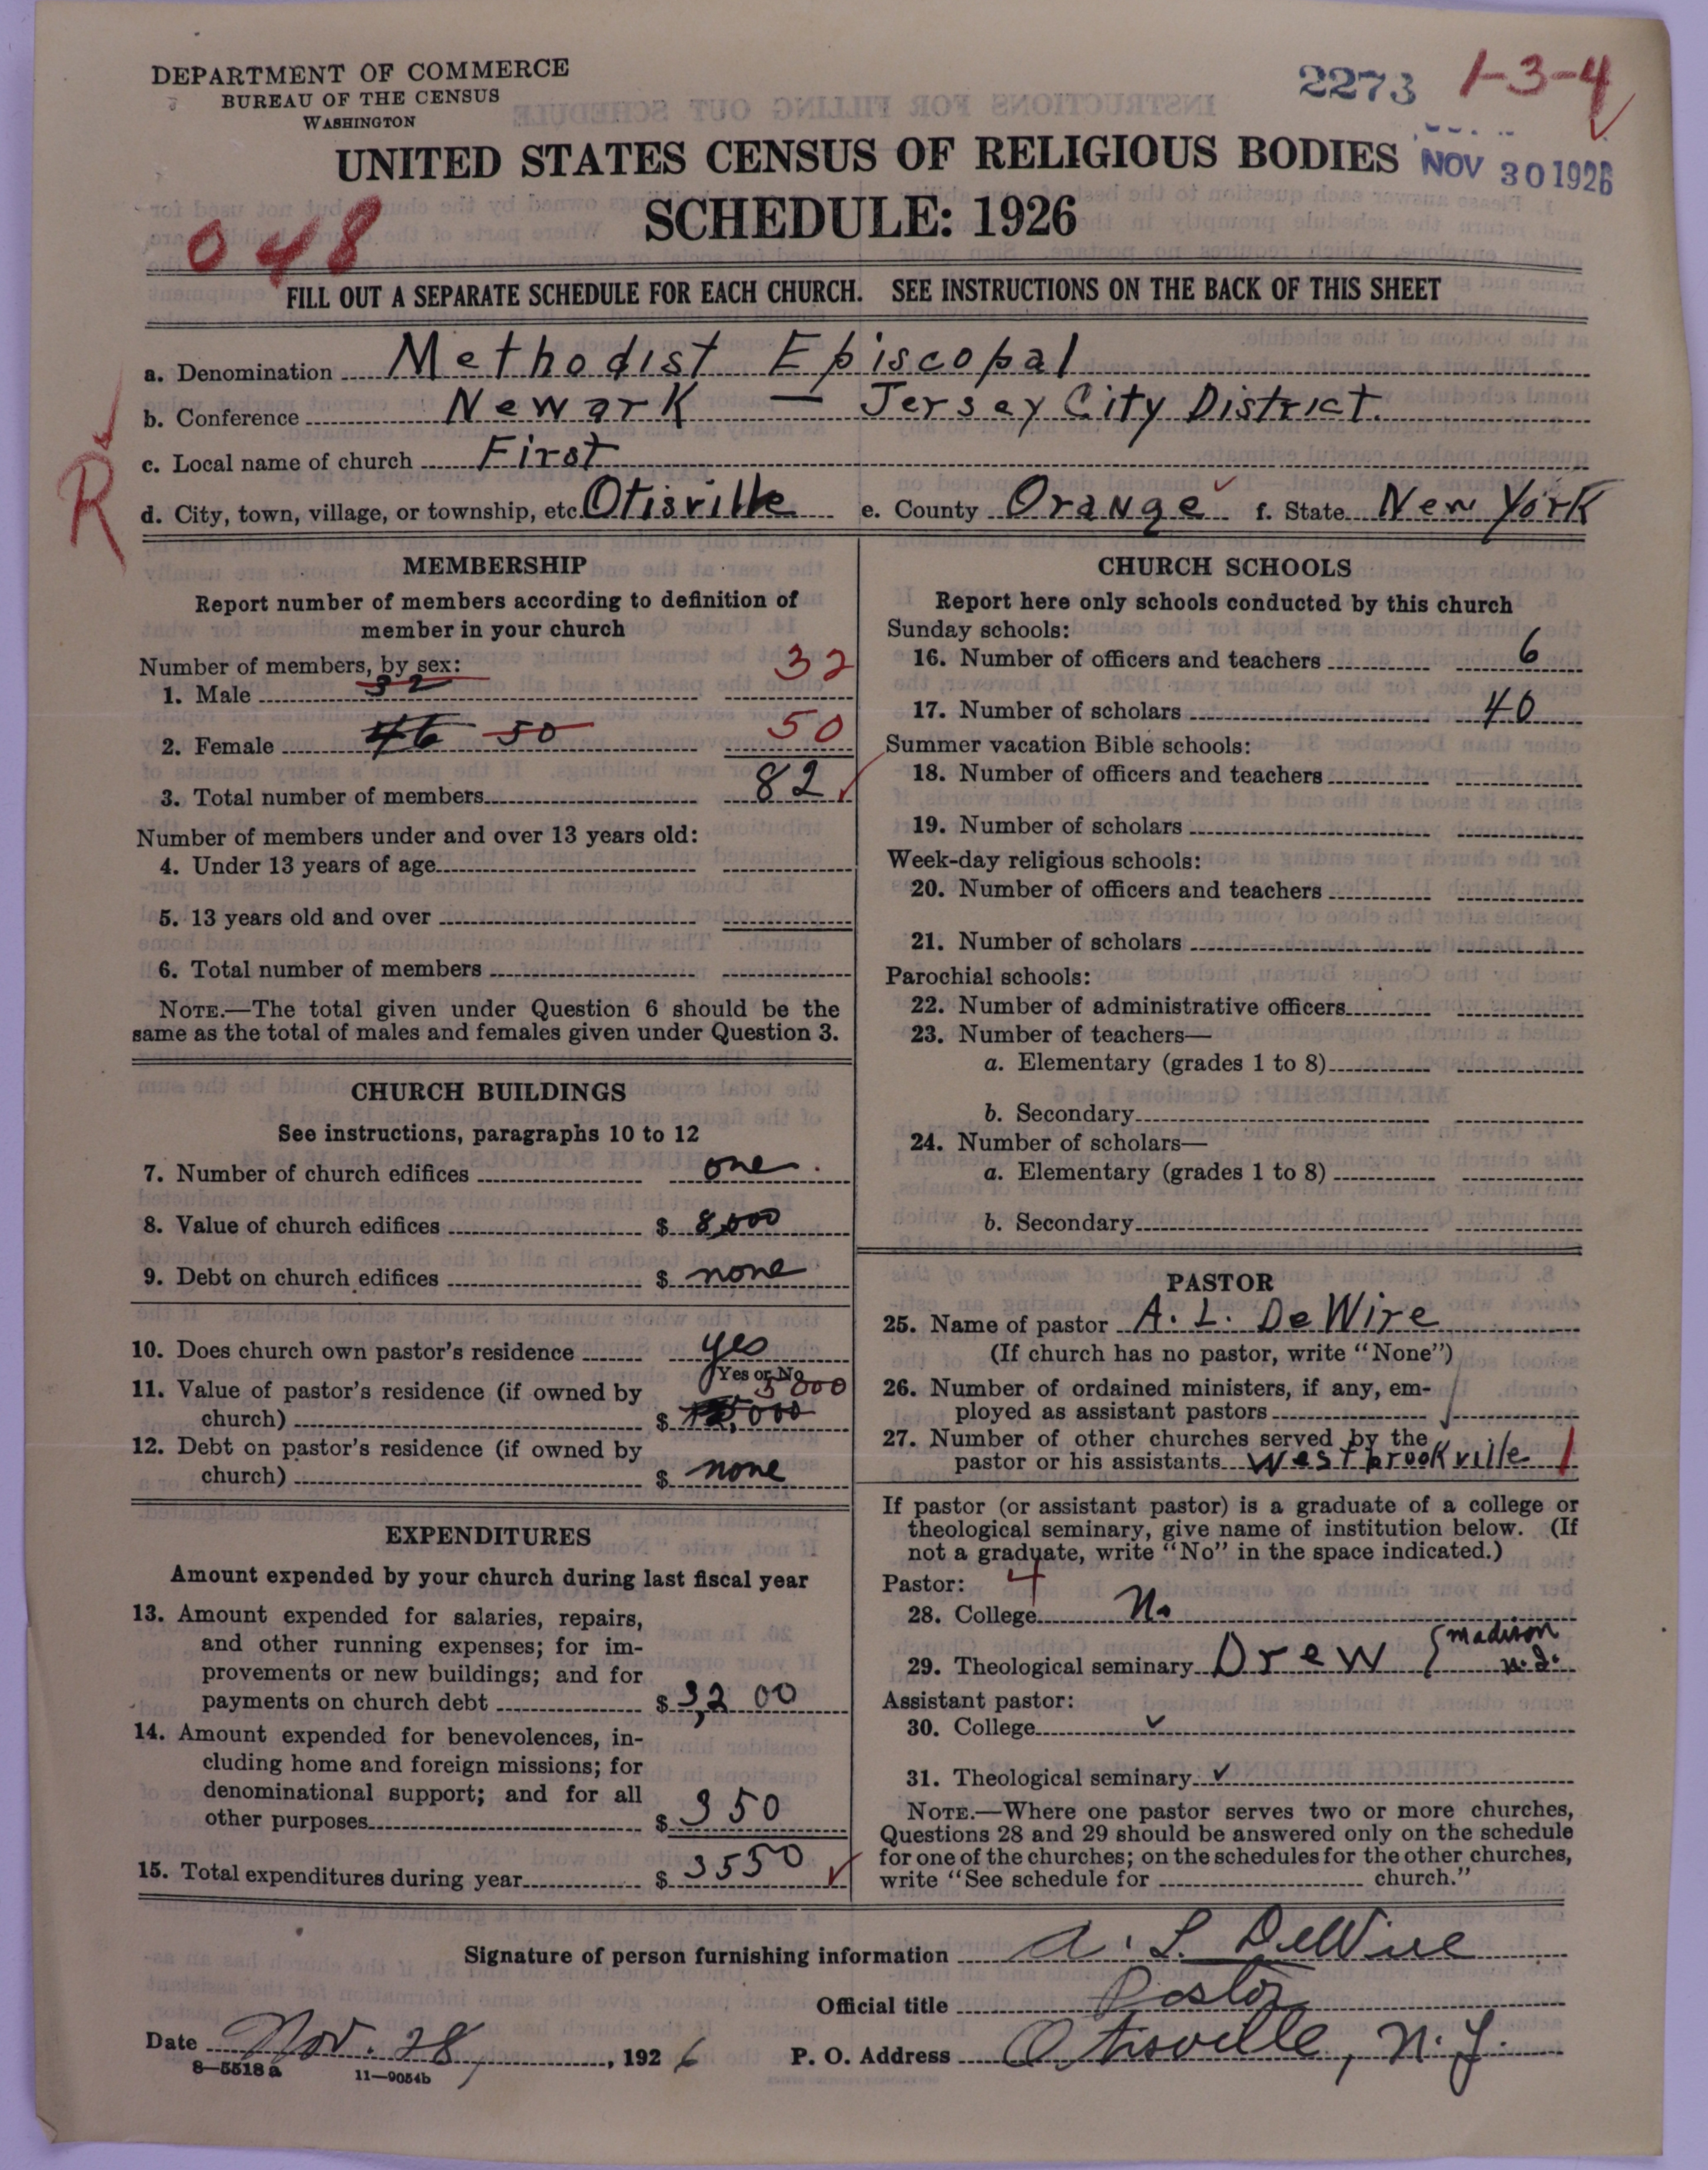 DEPARTMENT OF COMMERCE
BUREAU OF THE CENSUS
WASHINGTON
2273 1-3-4
UNITED STATES CENSUS OF RELIGIOUS BODIES
NOV 30 1926
SCHEDULE: 1926
048
FILL OUT A SEPARATE SCHEDULE FOR EACH CHURCH. SEE INSTRUCTIONS ON THE BACK OF THIS SHEET
a. Denomination Methodist Episcopal
b. Conference Newark — Jersey City District.
c. Local name of church First
R
d. City, town, village, or township, etc. Otisville e. County Orange f. State New York
MEMBERSHIP
Report number of members according to definition of
member in your church
Number of members, by sex:
1. Male 32 32
2. Female 46 50 50
3. Total number of members 82
Number of members under and over 13 years old:
4. Under 13 years of age
5. 13 years old and over
6. Total number of members
NOTE.—The total given under Question 6 should be the
same as the total of males and females given under Question 3.
CHURCH BUILDINGS
See instructions, paragraphs 10 to 12
7. Number of church edifices one.
8. Value of church edifices $ 8,000
9. Debt on church edifices $ none
10. Does church own pastor's residence yes
Yes or No
11. Value of pastor's residence (if owned by 5000
church) $ 000
12. Debt on pastor's residence (if owned by
church) $ none
EXPENDITURES
Amount expended by your church during last fiscal year
13. Amount expended for salaries, repairs,
and other running expenses; for im-
provements or new buildings; and for
payments on church debt $ 3,200
14. Amount expended for benevolences, in-
cluding home and foreign missions; for
denominational support; and for all
other purposes $ 350
15. Total expenditures during year $ 3550
CHURCH SCHOOLS
Report here only schools conducted by this church
Sunday schools:
16. Number of officers and teachers 6
17. Number of scholars 40
Summer vacation Bible schools:
18. Number of officers and teachers
19. Number of scholars
Week-day religious schools:
20. Number of officers and teachers
21. Number of scholars
Parochial schools:
22. Number of administrative officers
23. Number of teachers—
a. Elementary (grades 1 to 8)
b. Secondary
24. Number of scholars—
a. Elementary (grades 1 to 8)
b. Secondary
PASTOR
25. Name of pastor A. L. DeWire
(If church has no pastor, write "None")
26. Number of ordained ministers, if any, em-
ployed as assistant pastors
27. Number of other churches served by the
pastor or his assistants Westbrookville 1
If pastor (or assistant pastor) is a graduate of a college or
theological seminary, give name of institution below. (If
not a graduate, write "No" in the space indicated.)
Pastor: 4
28. College No
29. Theological seminary Drew { Madison
N. J.
Assistant pastor:
30. College ✓
31. Theological seminary ✓
NOTE.—Where one pastor serves two or more churches,
Questions 28 and 29 should be answered only on the schedule
for one of the churches; on the schedules for the other churches,
write "See schedule for church."
Signature of person furnishing information A. L. DeWire
Official title Pastor
Date Nov. 28, 1926 P. O. Address Otisville, N. Y.
8—5518a 11—9054b